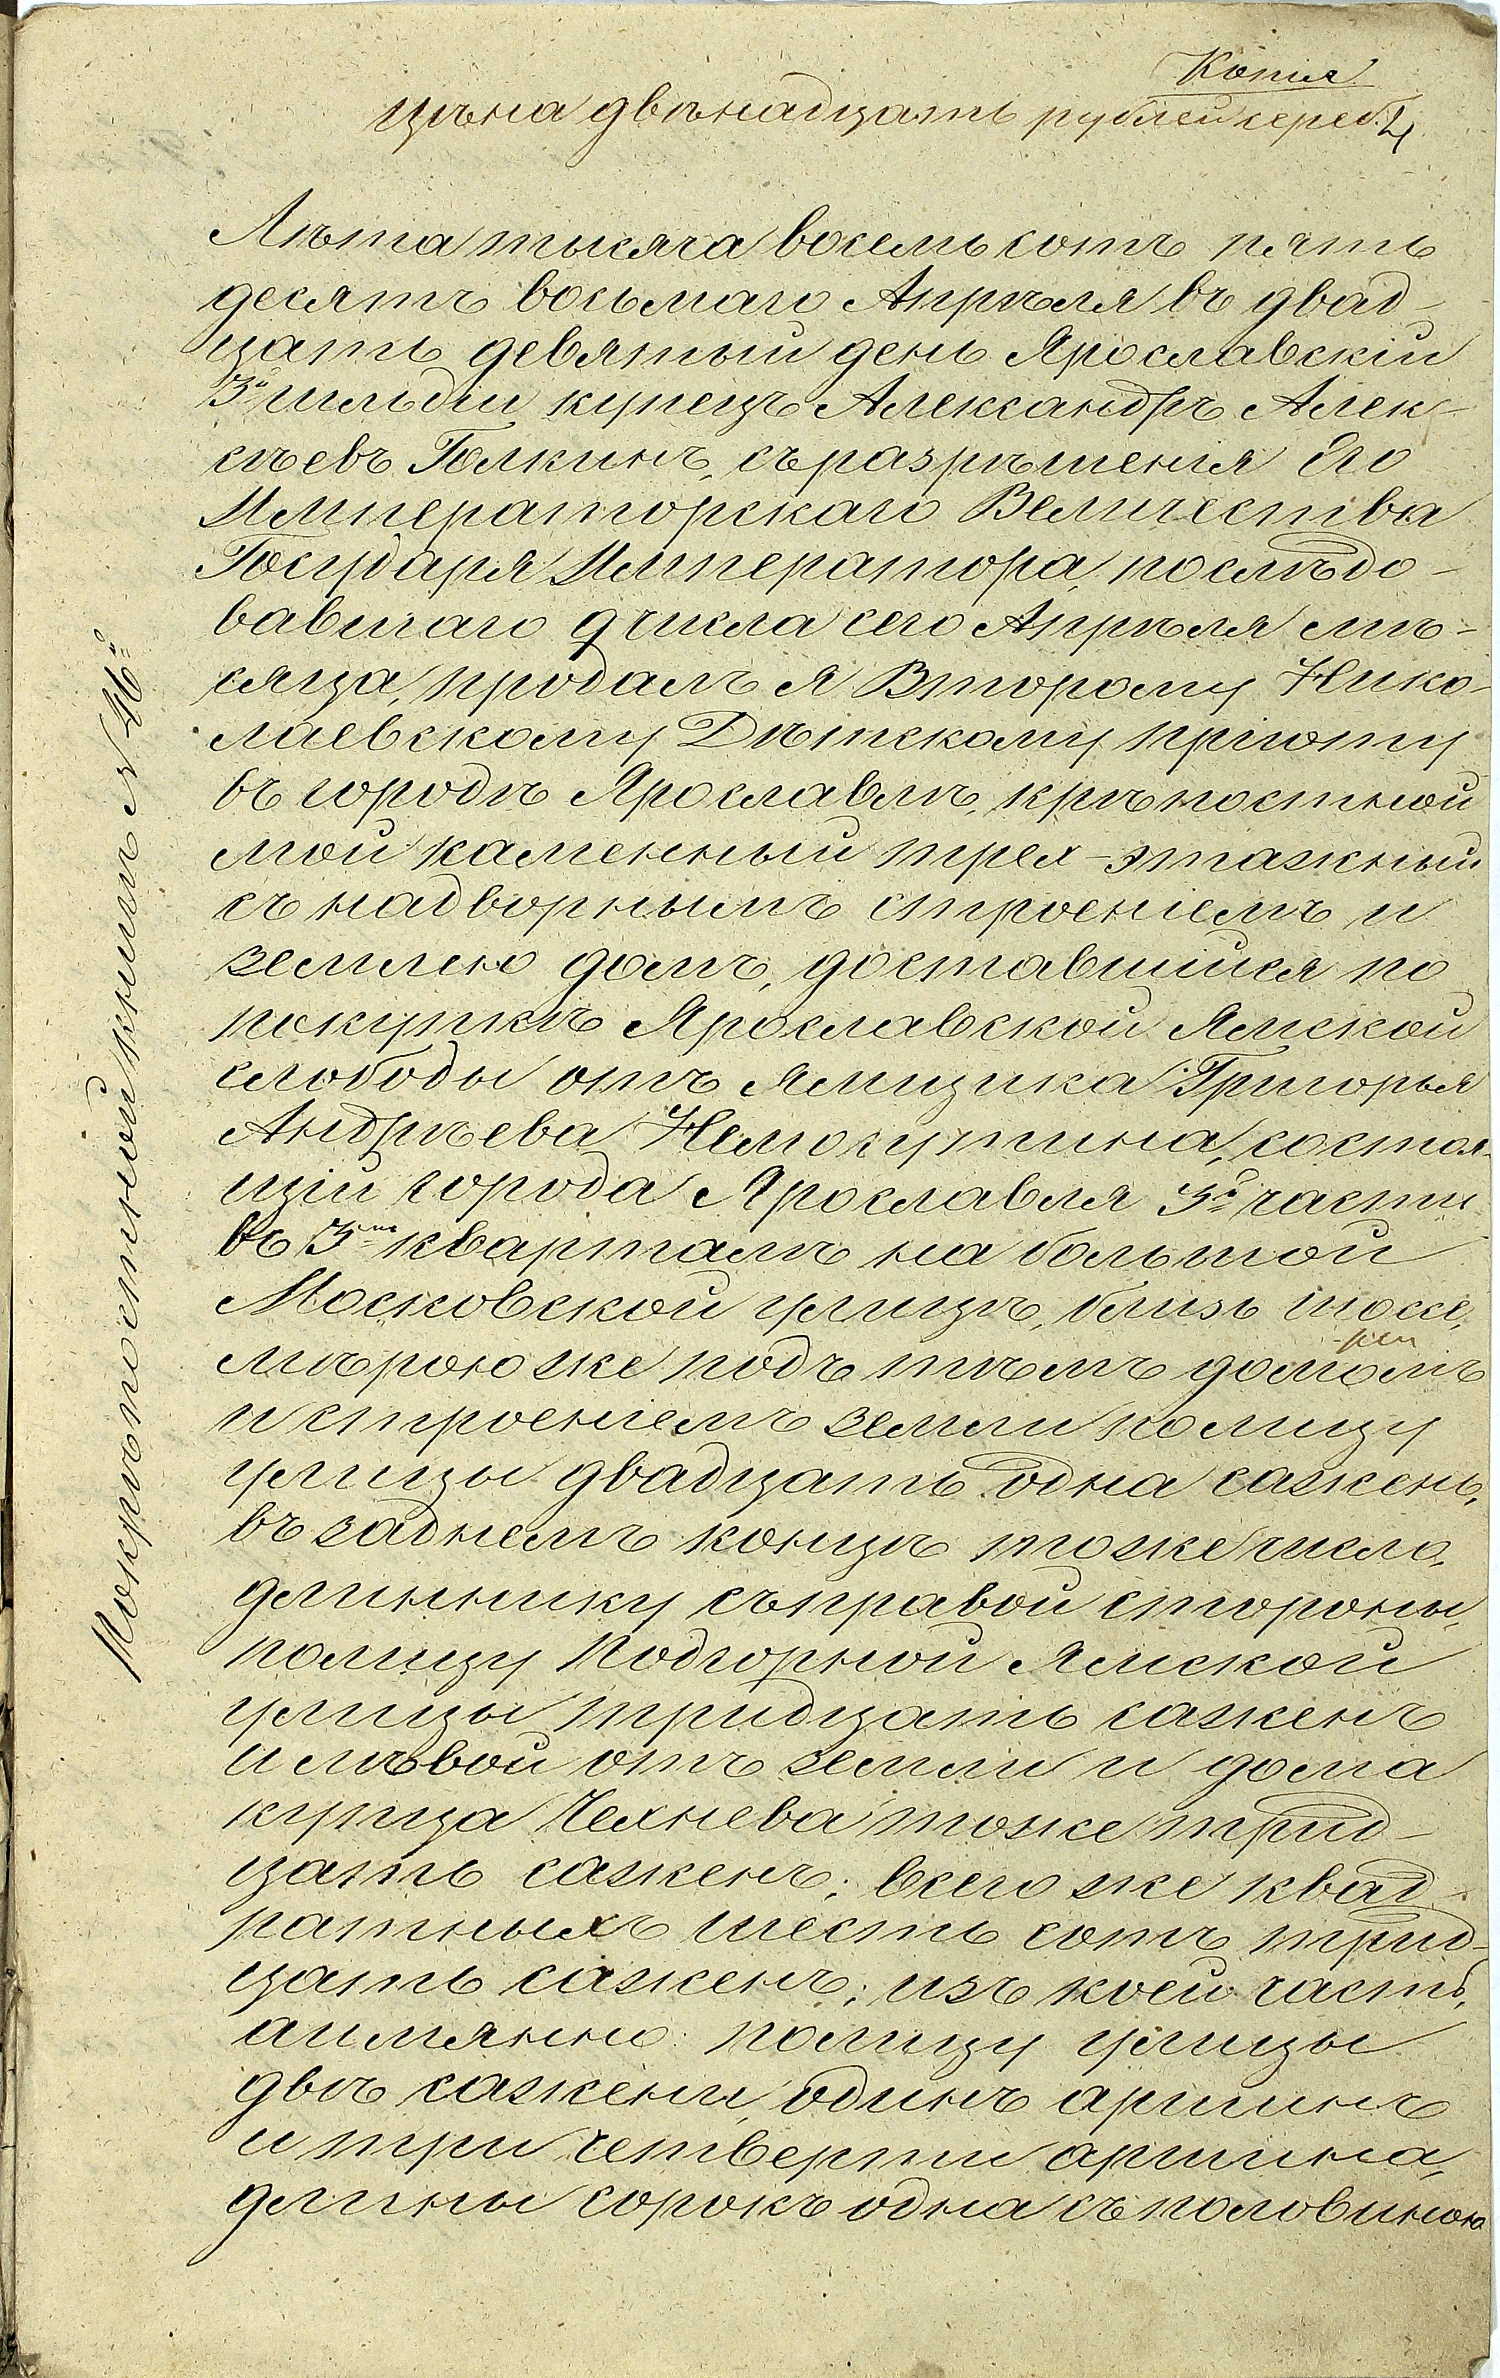 Копія
цѣна двѣнадцать рублей сереб.
Лѣта тысяча восемь сотъ пять
десятъ восьмаго Апрѣля въ двад-
цать девятый день Ярославскій
3й гильдіи купецъ Александръ Алек-
сѣевъ Галкинъ, съ разрѣшенія Его
Императорскаго Величества
Государя Императора, послѣдо-
вавшаго 9 числа сего Апрѣля мѣ-
сяца, продалъ я Второму Нико-
лаевскому Дѣтскому пріюту
въ городѣ Ярославлѣ, крѣпостной
мой каменный трех-этажный
съ надворнымъ строеніемъ и
землею домъ, доставшійся по
покупкѣ Ярославской Ямской
слободы отъ ямщика Григорья
Андрѣева, состоя-
щій города Ярославля 3й части
въ 3мъ кварталѣ на большой
Московской улицѣ, близь шоссе,
мѣрою же подъ тѣмъ домомъ
и строеніемъ земли по лицу
улицы двадцать одна сажень,
въ заднемъ концѣ тоже число,
длиннику съ правой стороны,
по лицу Подгорной Ямской
улицы тридцать саженъ
и лѣвой отъ земли и дома
купца Чехнева тоже трид-
цать саженъ; всего же квад-
ратныхъ шесть сотъ трид-
цать саженъ; изъ коей часть,
а имянно: по лицу улицы
двѣ сажени, одинъ аршинъ
и три четверти аршина,
длины сорокъ одна съ половиною
По крѣпостной книгѣ № 46й